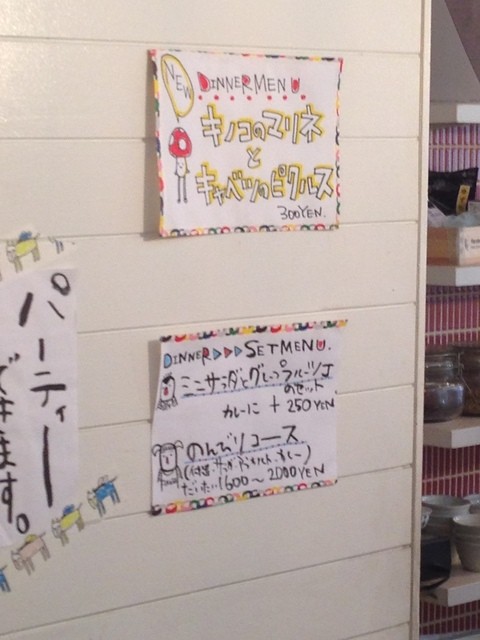 NEW
DINNER MENU
キノコのマリネ
と
キャベツのピクルス
300YEN.
DINNER▷▷▷SETMENU.
ミニサラダとグレープフルーツ
のセット
カレーに + 250YEN
のんびりコース
だいたい1600〜2000YEN
パーティー
できます。